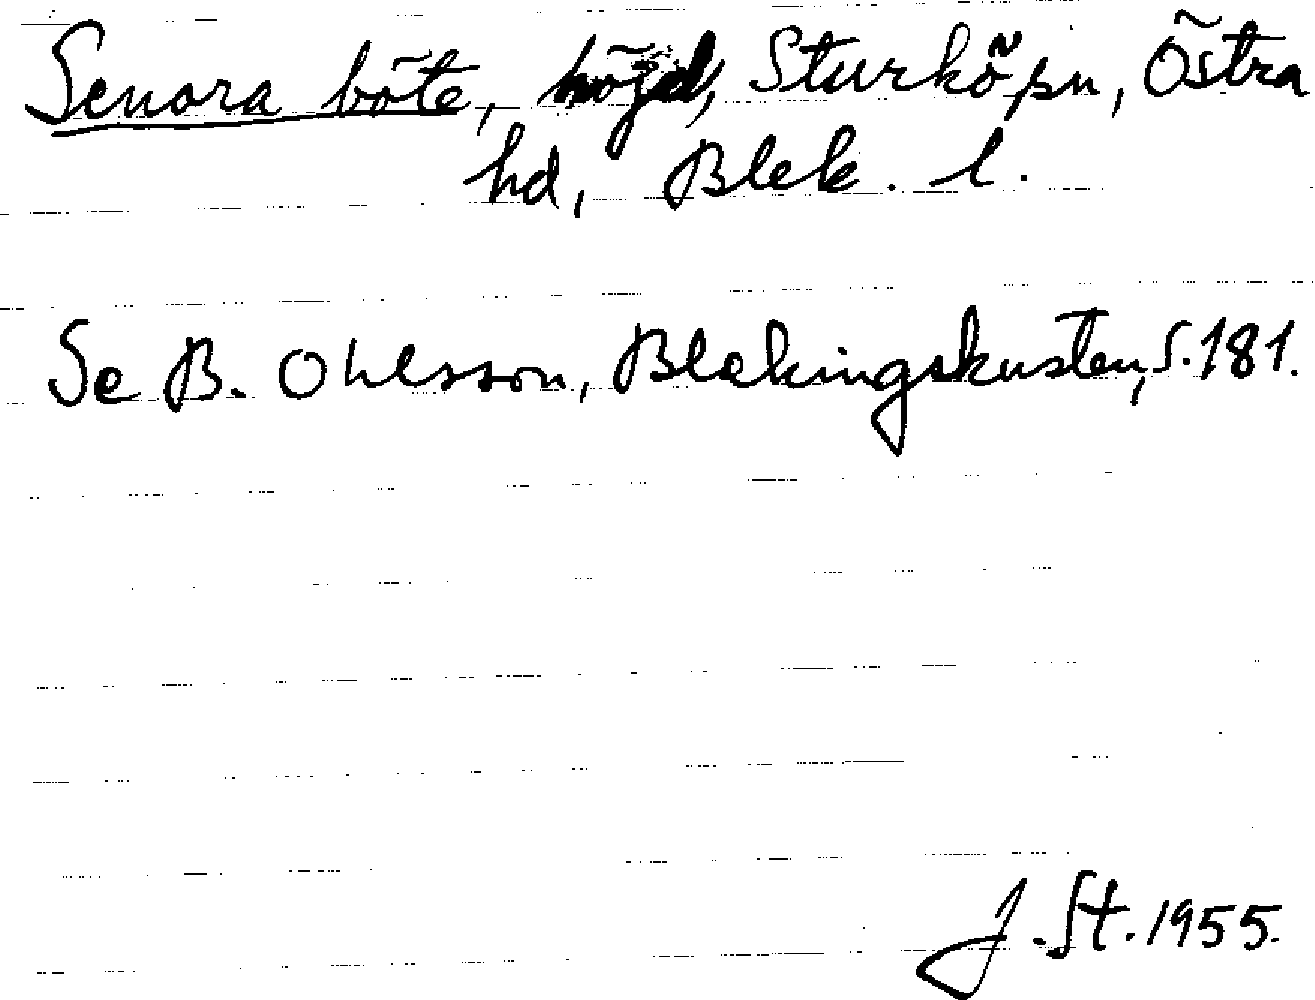 Senora böte, höjd, Sturkö sn, Östra
hd, Blek. l.
Se B. Ohlsson, Blekingskusten, s. 181.
J. St. 1955.